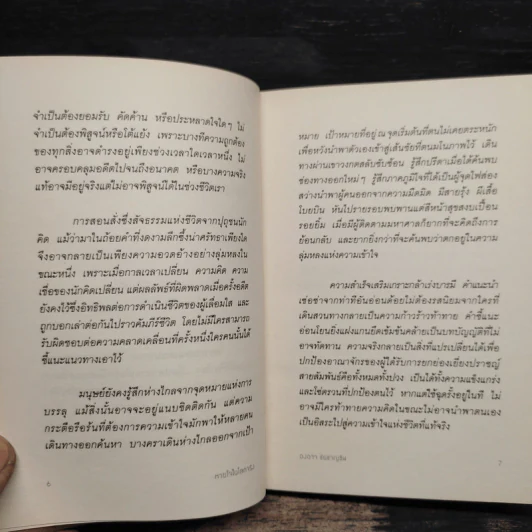 จำเป็นต้องยอมรับ คัดค้าน หรือประหลาดใจใดๆ ไม่
จำเป็นต้องพิสูจน์หรือโต้แย้ง เพราะบางทีความถูกต้อง
ของทุกสิ่งอาจดำรงอยู่เพียงช่วงเวลาใดเวลาหนึ่ง ไม่
อาจครอบคลุมอดีตไปจนถึงอนาคต หรือบางความจริง
แท้อาจมีอยู่จริงแต่ไม่อาจพิสูจน์ได้ในช่วงชีวิตเรา
การสอนสั่งซึ่งสัจธรรมแห่งชีวิตจากปุถุชนนัก
คิด แม้ว่ามาในถ้อยคำที่งดงามลึกซึ้งน่าศรัทธาเพียงใด
จึงอาจกลายเป็นเพียงความอวดอ้างอย่างลุ่มหลงใน
ขณะหนึ่ง เพราะเมื่อกาลเวลาเปลี่ยน ความคิด ความ
เชื่อของนักคิดเปลี่ยน แต่ผลลัพธ์ที่ผิดพลาดเมื่อครั้งอดีต
ยังคงไว้ซึ่งอิทธิพลต่อการดำเนินชีวิตของผู้เลื่อมใส และ
ถูกบอกเล่าต่อกันไปราวคัมภีร์ชีวิต โดยไม่มีใครสามารถ
รับผิดชอบต่อความคลาดเคลื่อนที่ครั้งหนึ่งใครคนนั้นได้
ชี้แนะแนวทางเอาไว้
มนุษย์ยังคงรู้สึกห่างไกลจากจุดหมายแห่งการ
บรรลุ แม้สิ่งนั้นอาจจะอยู่แนบชิดติดกัน แต่ความ
กระตือรือร้นที่ต้องการความเข้าใจมักพาให้หลายคน
เดินทางออกค้นหา บางคราเดินห่างไกลออกจากเป้า
6
หมาย เป้าหมายที่อยู่ ณ จุดเริ่มต้นที่ตนไม่เคยตระหนัก
เพื่อหวังนำพาตัวเองเข้าสู่เส้นชัยที่ตนมโนภาพไว้ เดิน
ทางผ่านเขาวงกตสลับซับซ้อน รู้สึกปรีดาเมื่อได้ค้นพบ
ช่องทางออกใหม่ๆ รู้สึกภาคภูมิใจที่ได้เป็นผู้จุดไฟส่อง
สว่างนำพาผู้คนออกจากความมืดมิด มีสายรุ้ง มีผีเสื้อ
โบยบิน หันไปรายรอบพบพานแต่สีหน้าสุขสงบเปื้อน
รอยยิ้ม เมื่อมีผู้ติดตามมหาศาลก็ยากที่จะคิดถึงการ
ย้อนกลับ และยากยิ่งกว่าที่จะค้นพบว่าตกอยู่ในความ
ลุ่มหลงแห่งความเข้าใจ
ความสำเร็จเสริมเกราะกล้าเร่งบารมี คำแนะนำ
เดินสวนทางกลายเป็นความก้าวร้าวท้าทาย คำชี้แนะ
อ่อนโยนยิ่งแฝงแกนยึดเข้มข้นคล้ายเป็นบทบัญญัติที่ไม่
อาจทัดทาน ความจริงกลายเป็นสิ่งที่แปรเปลี่ยนได้เพื่อ
ปกป้องอาณาจักรของผู้ได้รับการยกย่องเยี่ยงปราชญ์
สายสัมพันธ์คือทั้งหมดทั้งปวง เป็นได้ทั้งความแข็งแกร่ง
และโซ่ตรวนที่ปกป้องตนไว้ หากแต่ใช้ฉุดรั้งอยู่ในที ไม่
อาจมีใครท้าทายความคิดในขณะไม่อาจนำพาตนเอง
เป็นอิสระไปสู่ความเข้าใจแห่งชีวิตที่แท้จริง
7